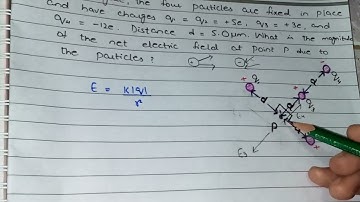 the four particles are fixed in place
and have charges q₁ = q₂ = +5e, q₃ = +3e, and
q₄ = -12e. Distance d = 5.0μm. What is the magnitude
of the net electric field at point P due to
the particles?
E = K|q|
r²
q₁
d
q₂
d
q₃
d
P
E₃